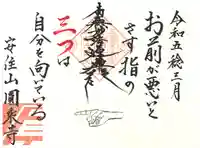 令和五癸三月
お前が悪いと
さす指の
三つは
自分を向いている
安住山圓泉寺